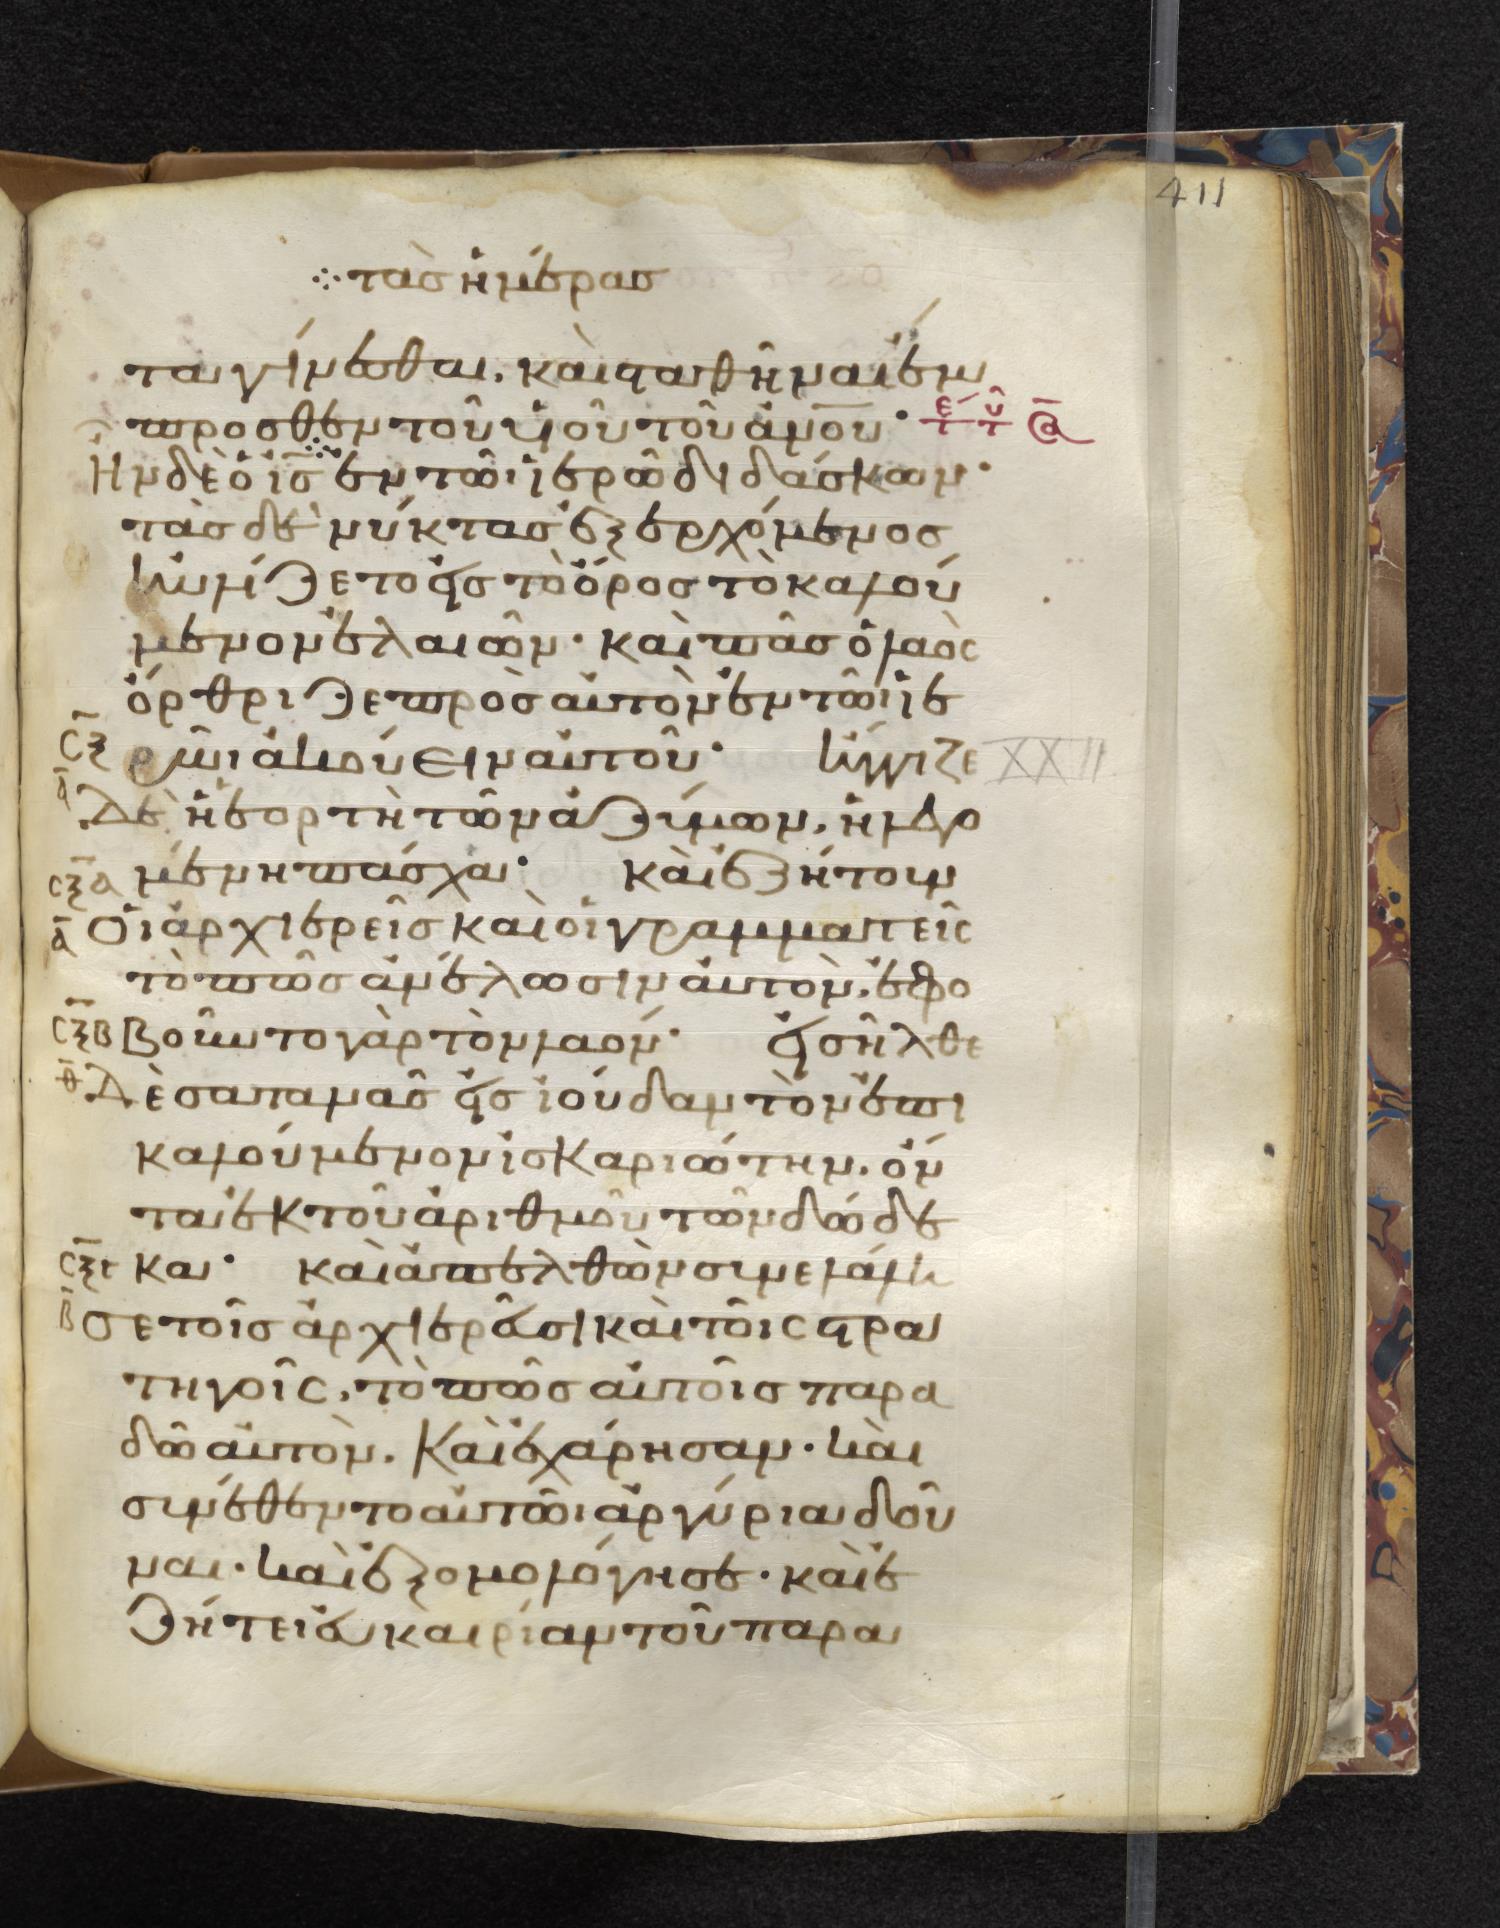 411
⁘ τὰσ ἡμέρασ
τα γίνεσθαι, καὶ σταθῆναι ἔμ
προσθεν τοῦ υἱοῦ τοῦ ἀνου·
Ἦν δὲ ὁ ισ ⁘ ἐν τῶι ἱερῶ διδάσκων·
τὰσ δὲ νύκτασ ἐξερχόμενοσ
ηὐλίζετο εἰσ τὸ ὄροσ τὸ καλού
μενον ἐλαιῶν· καὶ πᾶσ ὁ λαὸσ
ὄρθριζε πρὸσ αὐτὸν ἐν τῶι ἱε
σξ ρῶι ἀκούειν αὐτοῦ· ἤγγιζε XXII
α Δὲ ἡ ἑορτὴ τῶν ἀζύμων, ἡ λεγο
σξα μένη πάσχα· καὶ ἐζήτουν
α Οἱ ἀρχιερεῖσ καὶ οἱ γραμματεῖσ
τὸ πῶσ ἀνέλωσιν αὐτὸν, ἐφο
σξβ Βοῦντο γὰρ τὸν λαόν· εἰσῆλθε
θ Δὲ σατανᾶσ εἰσ ἰούδαν τὸν ἐπι
καλούμενον ἰσκαριώτην, ὄν
τα ἐκ τοῦ ἀριθμοῦ τῶν δώδε
κα· καὶ ἀπελθὼν συνελάλη
β Σε τοῖσ ἀρχιερεῦσι καὶ τοῖσ στρα
τηγοῖσ, τὸ πῶσ αὐτοῖσ παρα
δῶ αὐτὸν. Καὶ ἐχάρησαν· καὶ
συνέθεντο αὐτῶι ἀργύρια δοῦ
ναι· καὶ ἐξομολόγησε· καὶ ἐ
ζήτει εὐκαιρίαν τοῦ παρα